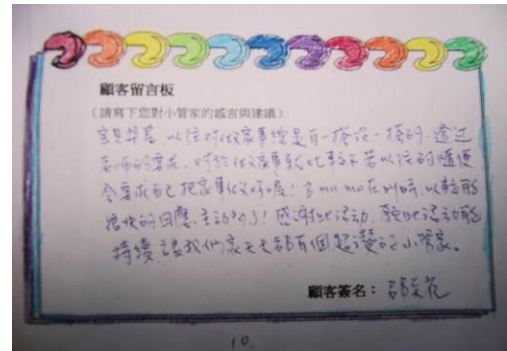 顧客留言板
(請寫下您對小管家的感言與建議)
以往對做家事總是有一搭沒一搭的,透過
老師的要求,對於做家事就比較不若以往的隨便
會要求自己把家事做好喔!當ma ma在叫時,以較能
愉快的回應,主動多了!感謝此活動,願此活動能
持續,讓我們家天天都有個超讚的小管家。
顧客簽名:
10.